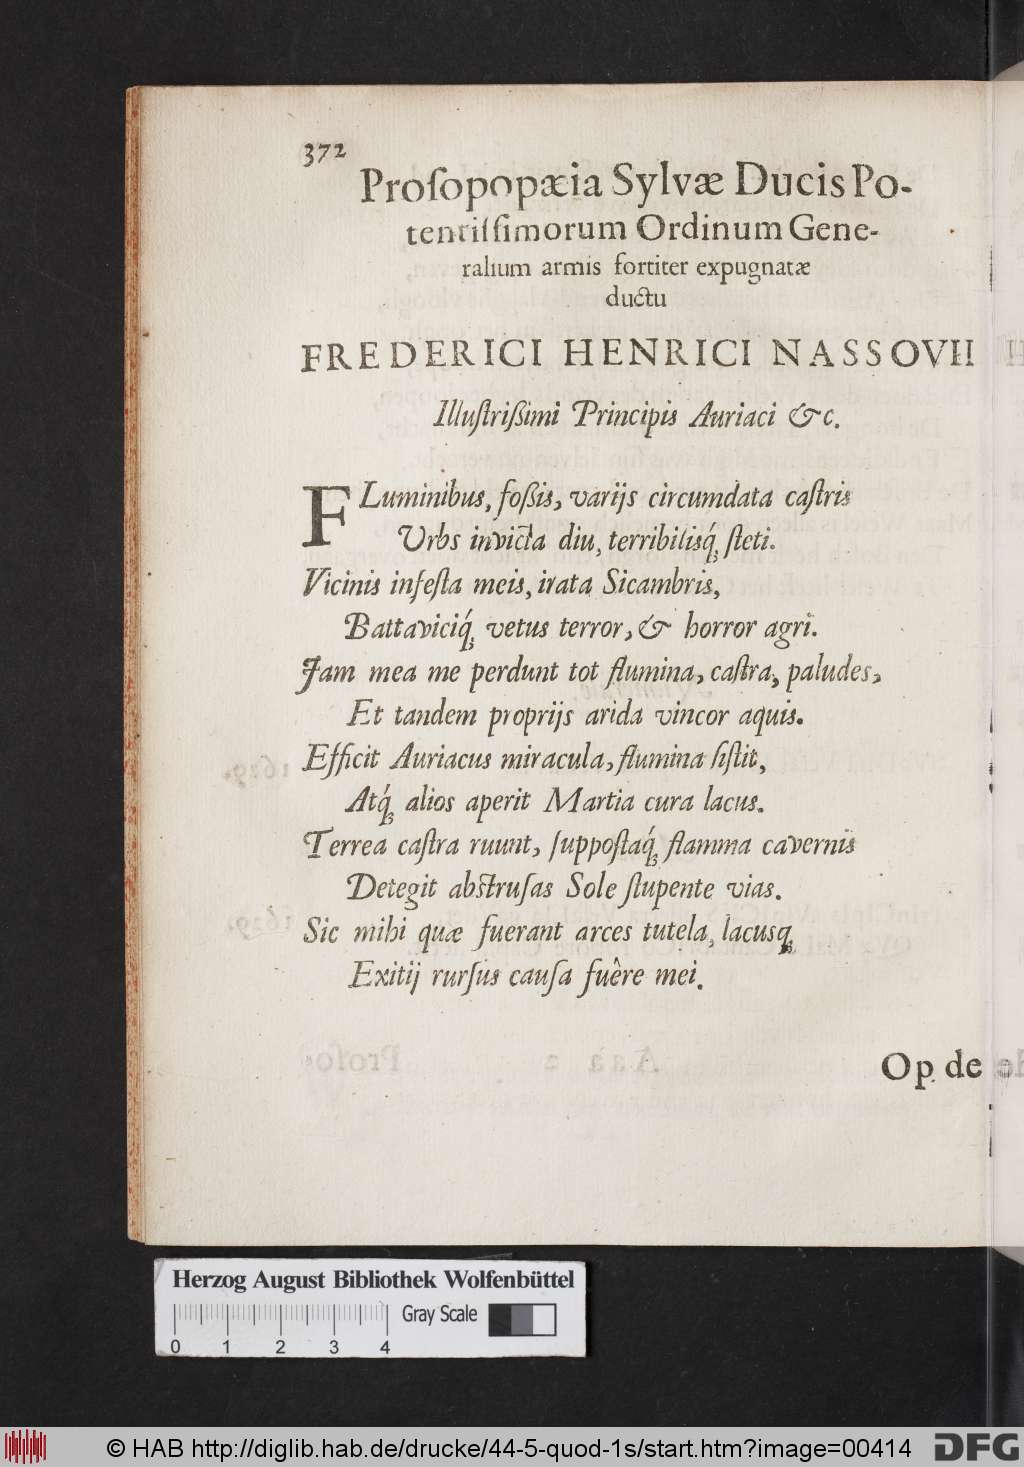 372
Proſopopæia Sylvæ Ducis Po-
tentiſſimorum Ordinum Gene-
ralium armis fortiter expugnatæ
ductu
FREDERICI HENRICI NASSOVII
Illuſtrißimi Principis Auriaci &c.
FLuminibus, foßis, varijs circumdata caſtris
Urbs invicta diu, terribilisq́; ſteti.
Vicinis infeſta meis, irata Sicambris,
Battaviciq́; vetus terror, & horror agri.
Jam mea me perdunt tot flumina, caſtra, paludes,
Et tandem proprijs arida vincor aquis.
Efficit Auriacus miracula, flumina ſiſtit,
Atq́; alios aperit Martia cura lacus.
Terrea caſtra ruunt, ſuppoſtaq́; flamma cavernis
Detegit abſtruſas Sole ſtupente vias.
Sic mihi quæ fuerant arces tutela, lacusq;
Exitij rurſus cauſa fuêre mei.
Op de
Herzog August Bibliothek Wolfenbüttel
Gray Scale
0 1 2 3 4
© HAB http://diglib.hab.de/drucke/44-5-quod-1s/start.htm?image=00414
DFG